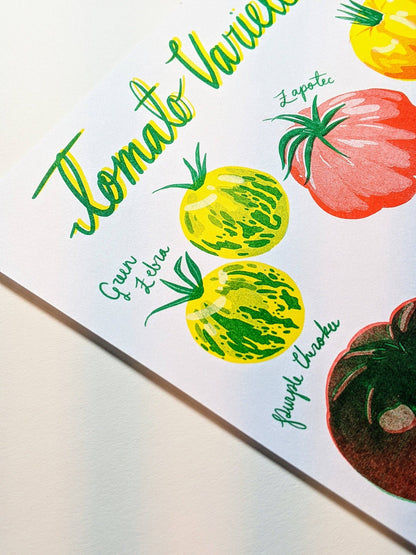 Tomato Varieti
Zapotec
Green
Zebra
Purple Cherokee